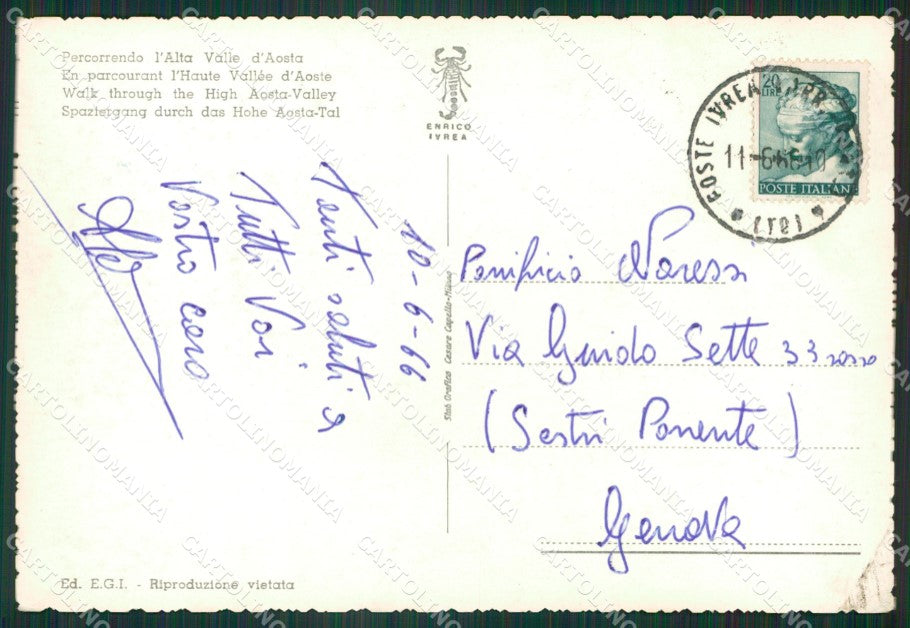 Percorrendo l'Alta Valle d'Aosta
En parcourant l'Haute Vallée d'Aoste
Walk through the High Aosta-Valley
Spaziergang durch das Hohe Aosta-Tal
ENRICO
IVREA
20
LIRE
POSTE ITALIANE
POSTE IVREA
11-6
(TO)
10-6-66
Tanti saluti a
Tutti Voi
Vostro caro
Stab Grafico Cesare Capello-Milano
Panificio Varessi
Via Guido Sette 33 rosso
(Sestri Ponente)
Genova
Ed. E.G.I. - Riproduzione vietata
CARTOLINOMANIA